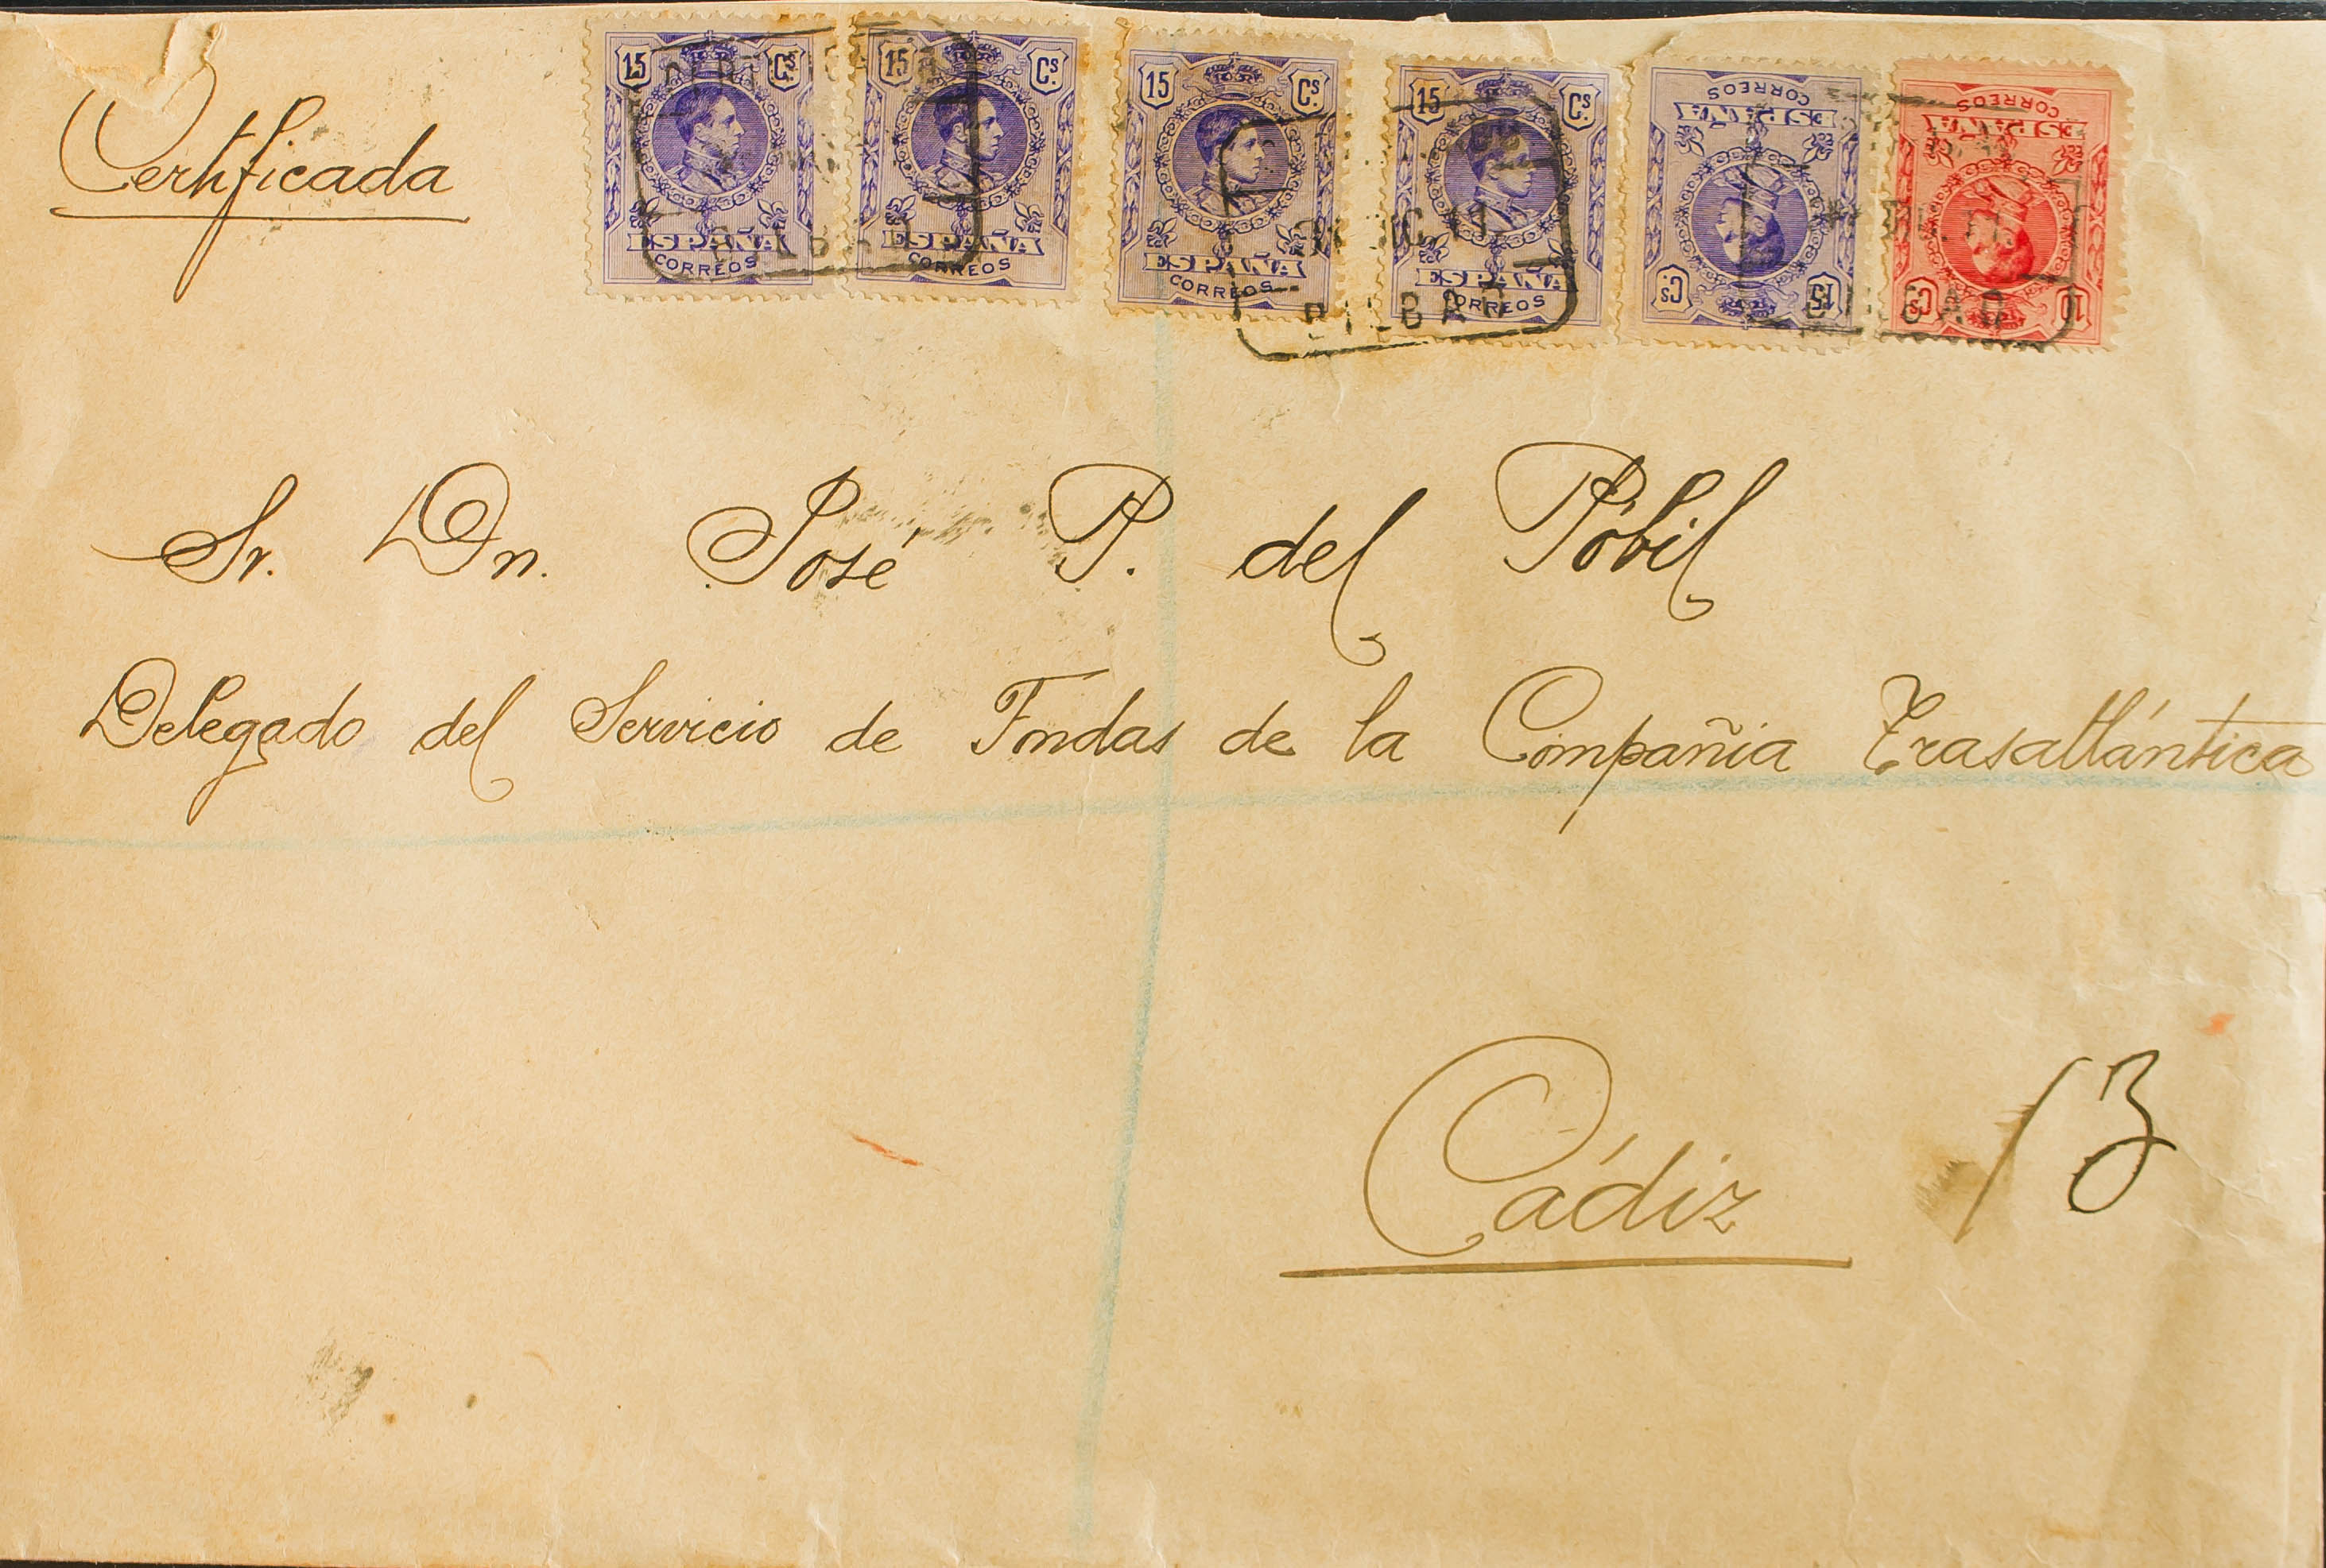 15 Cs.
ESPAÑA
CORREOS
15 Cs.
ESPAÑA
CORREOS
15 Cs.
ESPAÑA
CORREOS
15 Cs.
ESPAÑA
CORREOS
15 Cs.
ESPAÑA
CORREOS
10 Cs.
ESPAÑA
CORREOS
BILBAO
Certificada
Sr. Dn. José P. del Póbil
Delegado del Servicio de Fondas de la Compañia Trasatlántica
Cádiz
13